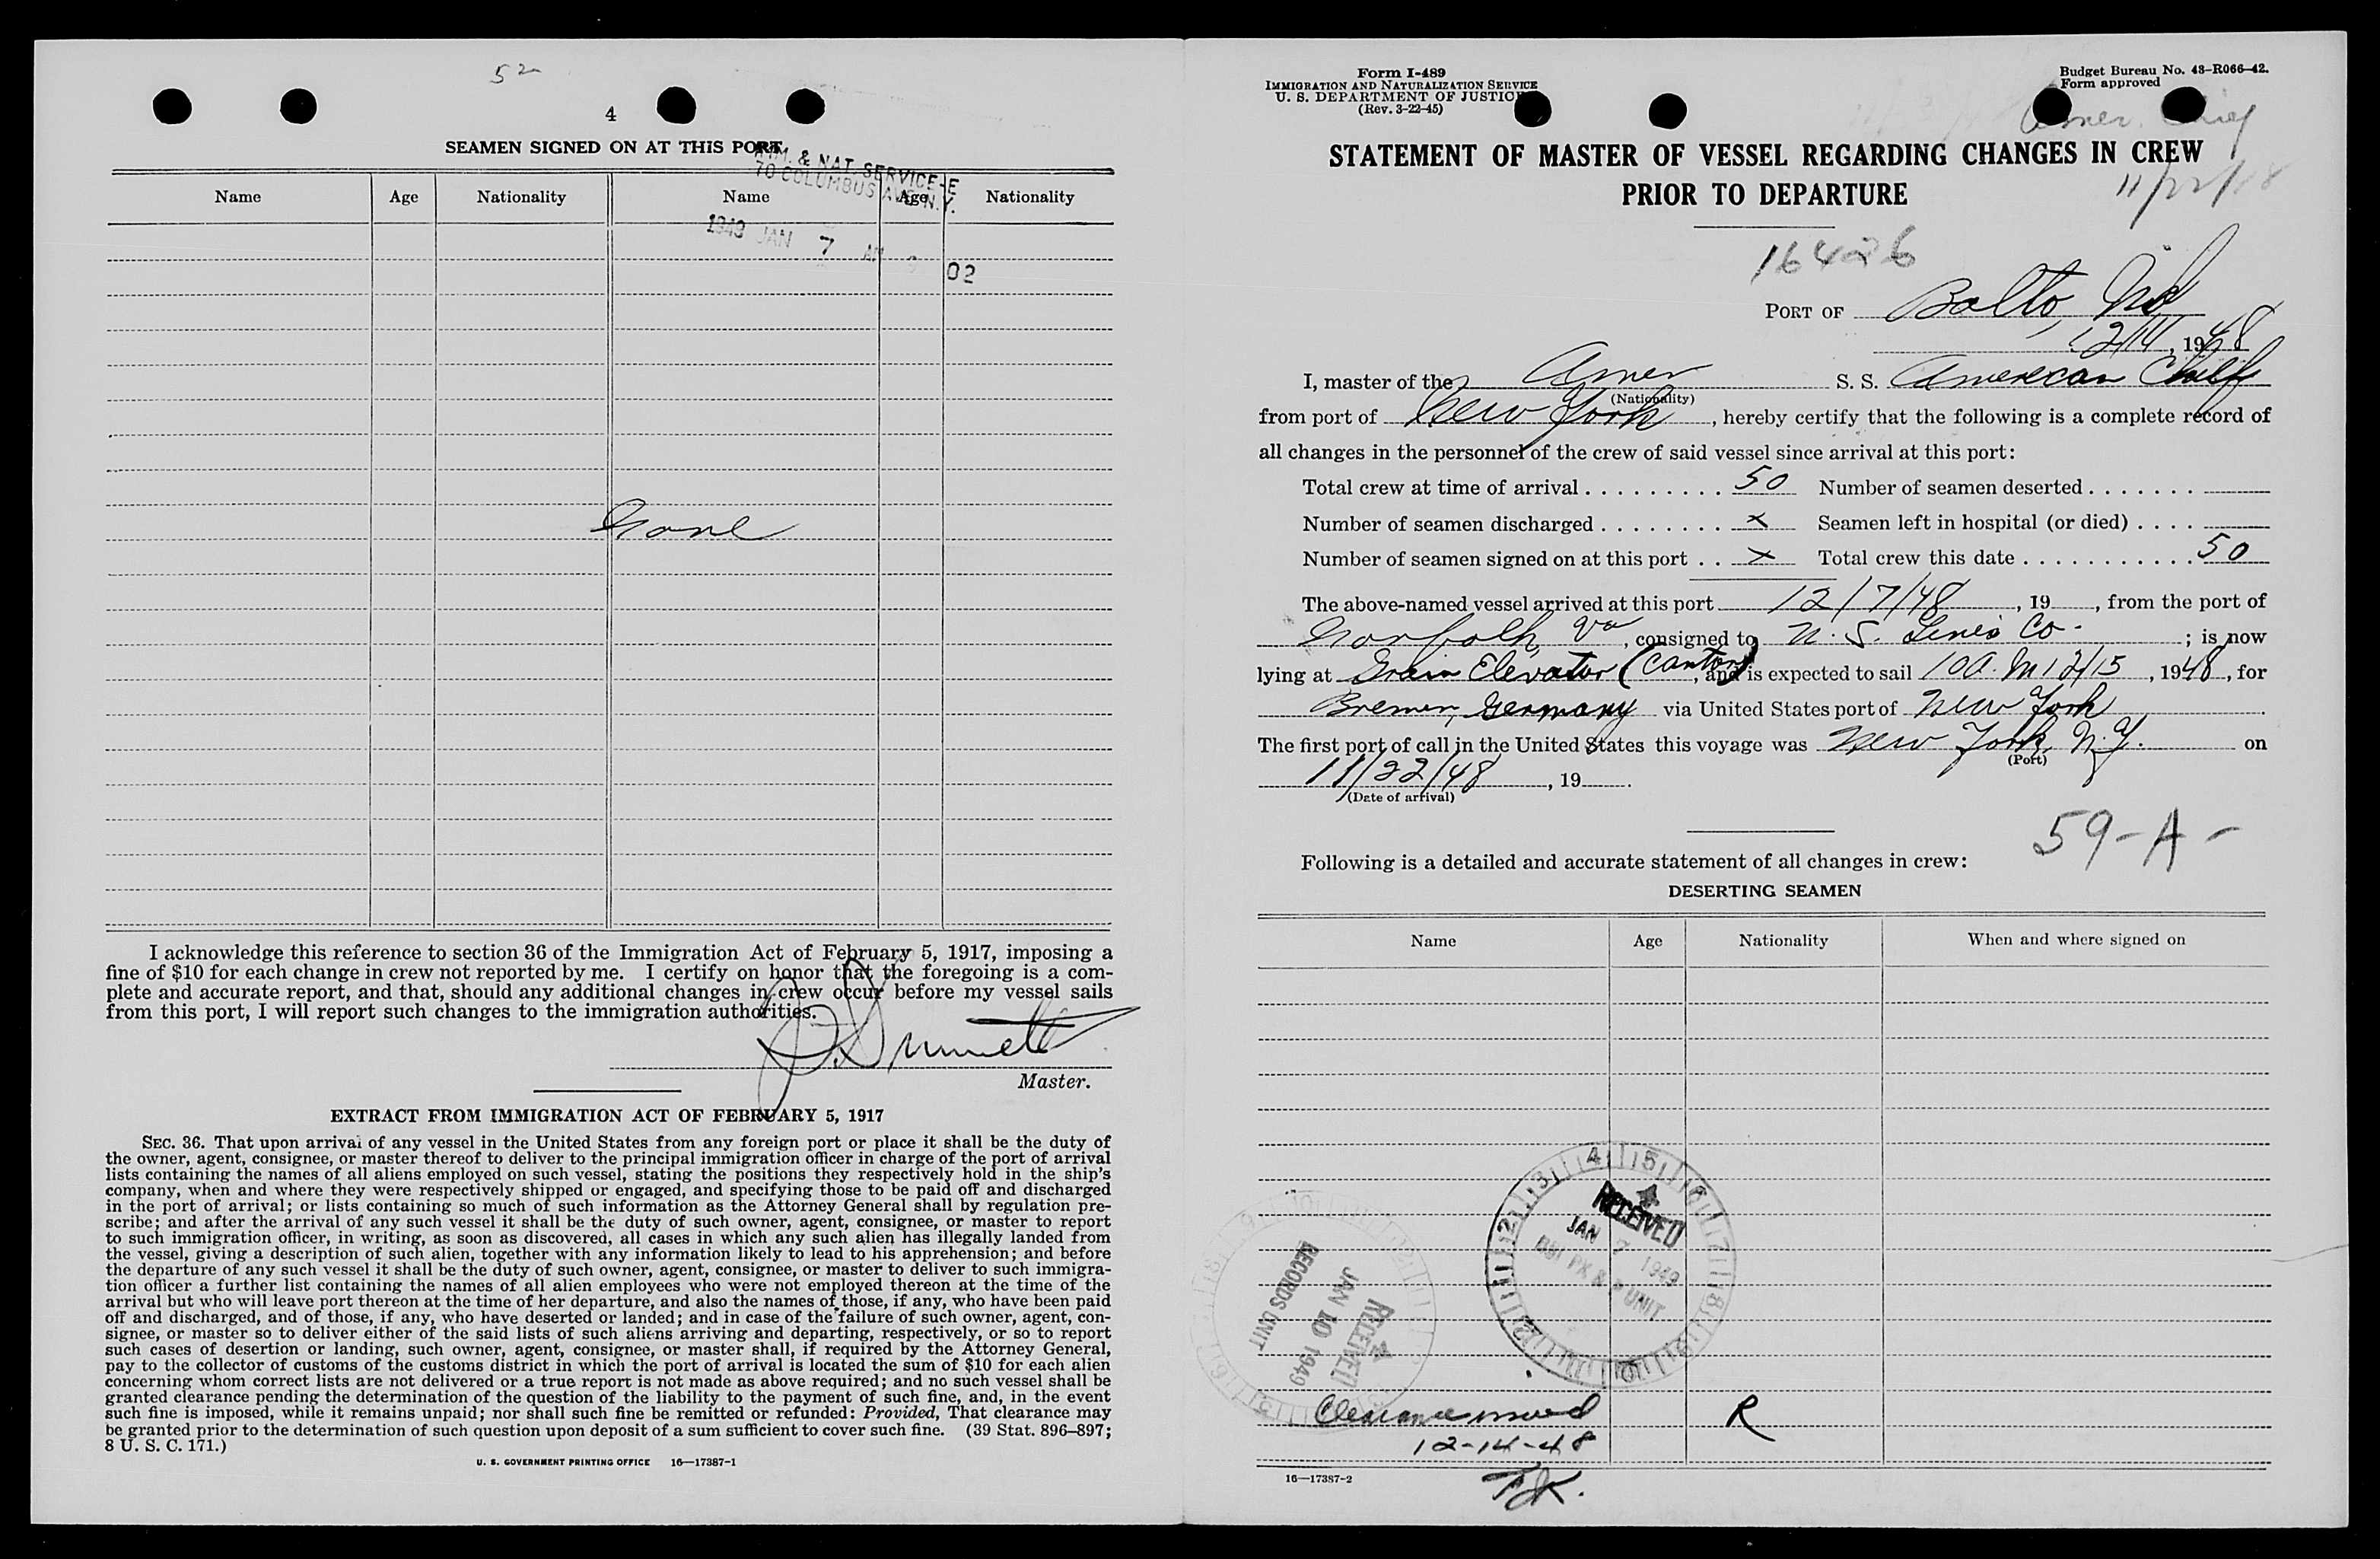 52
4
SEAMEN SIGNED ON AT THIS PORT
IMM. & NAT. SERVICE-E
70 COLUMBUS AVE. N.Y.
1949 JAN 7 AM 9 02
Name Age Nationality Name Age Nationality
None
I acknowledge this reference to section 36 of the Immigration Act of February 5, 1917, imposing a
fine of $10 for each change in crew not reported by me. I certify on honor that the foregoing is a com-
plete and accurate report, and that, should any additional changes in crew occur before my vessel sails
from this port, I will report such changes to the immigration authorities.
Master.
EXTRACT FROM IMMIGRATION ACT OF FEBRUARY 5, 1917
SEC. 36. That upon arrival of any vessel in the United States from any foreign port or place it shall be the duty of
the owner, agent, consignee, or master thereof to deliver to the principal immigration officer in charge of the port of arrival
lists containing the names of all aliens employed on such vessel, stating the positions they respectively hold in the ship's
company, when and where they were respectively shipped or engaged, and specifying those to be paid off and discharged
in the port of arrival; or lists containing so much of such information as the Attorney General shall by regulation pre-
scribe; and after the arrival of any such vessel it shall be the duty of such owner, agent, consignee, or master to report
to such immigration officer, in writing, as soon as discovered, all cases in which any such alien has illegally landed from
the vessel, giving a description of such alien, together with any information likely to lead to his apprehension; and before
the departure of any such vessel it shall be the duty of such owner, agent, consignee, or master to deliver to such immigra-
tion officer a further list containing the names of all alien employees who were not employed thereon at the time of the
arrival but who will leave port thereon at the time of her departure, and also the names of those, if any, who have been paid
off and discharged, and of those, if any, who have deserted or landed; and in case of the failure of such owner, agent, con-
signee, or master so to deliver either of the said lists of such aliens arriving and departing, respectively, or so to report
such cases of desertion or landing, such owner, agent, consignee, or master shall, if required by the Attorney General,
pay to the collector of customs of the customs district in which the port of arrival is located the sum of $10 for each alien
concerning whom correct lists are not delivered or a true report is not made as above required; and no such vessel shall be
granted clearance pending the determination of the question of the liability to the payment of such fine, and, in the event
such fine is imposed, while it remains unpaid; nor shall such fine be remitted or refunded: Provided, That clearance may
be granted prior to the determination of such question upon deposit of a sum sufficient to cover such fine. (39 Stat. 896–897;
8 U. S. C. 171.)
U. S. GOVERNMENT PRINTING OFFICE 16—17387-1
Form I-489
IMMIGRATION AND NATURALIZATION SERVICE
U. S. DEPARTMENT OF JUSTICE
(Rev. 3-22-45)
Budget Bureau No. 43-R066-42.
Form approved
Amer. Chief
11/22/48
STATEMENT OF MASTER OF VESSEL REGARDING CHANGES IN CREW
PRIOR TO DEPARTURE
16426
PORT OF Balto, Md
12/14, 1948
I, master of the Amer S. S. American Chief
(Nationality)
from port of New York, hereby certify that the following is a complete record of
all changes in the personnel of the crew of said vessel since arrival at this port:
Total crew at time of arrival . . . . . . . . . 50 Number of seamen deserted . . . . . . .
Number of seamen discharged . . . . . . . . x Seamen left in hospital (or died) . . . .
Number of seamen signed on at this port . . x Total crew this date . . . . . . . . . . . 50
The above-named vessel arrived at this port 12/7/48, 19, from the port of
Norfolk Va, consigned to U. S. Lines Co.; is now
lying at Grain Elevator (Canton), and is expected to sail 10 A.M 12/15, 1948, for
Bremen, Germany via United States port of New York
The first port of call in the United States this voyage was New York, N.Y. on
(Port)
11/22/48, 19.
(Date of arrival)
59-A-
Following is a detailed and accurate statement of all changes in crew:
DESERTING SEAMEN
Name Age Nationality When and where signed on
RECEIVED
JAN 7 1949
UNIT
RECEIVED
JAN 10 1949
RECORDS UNIT
Clearance issued R
12-14-48
16—17387-2